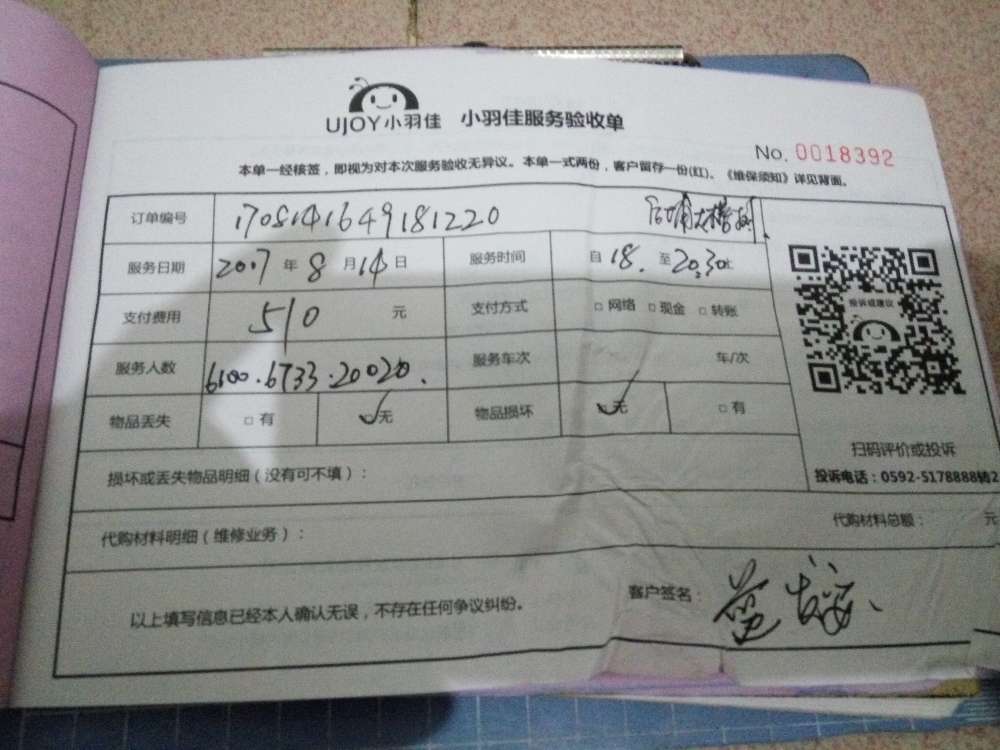 UJOY小羽佳 小羽佳服务验收单
No. 0018392
本单一经核签，即视为对本次服务验收无异议。本单一式两份，客户留存一份(红)。《维保须知》详见背面。
订单编号 1708141649181220
服务日期 2017 年 8 月 14 日 服务时间 自 18. 至 20.30
支付费用 510 元 支付方式 □ 网络 □ 现金 □ 转账
投诉或建议
服务人数 6100.6733.20020. 服务车次 车/次
物品丢失 □ 有 □ 无 物品损坏 □ 无 □ 有
扫码评价或投诉
损坏或丢失物品明细（没有可不填）：
投诉电话：0592-5178888转2
代购材料明细（维修业务）：
代购材料总额： 元
以上填写信息已经本人确认无误，不存在任何争议纠纷。
客户签名：